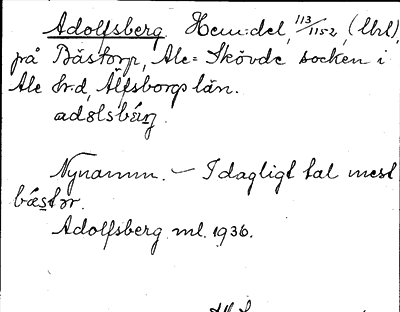 Adolfsberg Hem.del, 113/1152, (Ubl),
på Båstorp, Ale-Skövde socken i
Ale hd, Älfsborgs län.
Nynamn. – I dagligt tal mest
Adolfsberg ml. 1936.